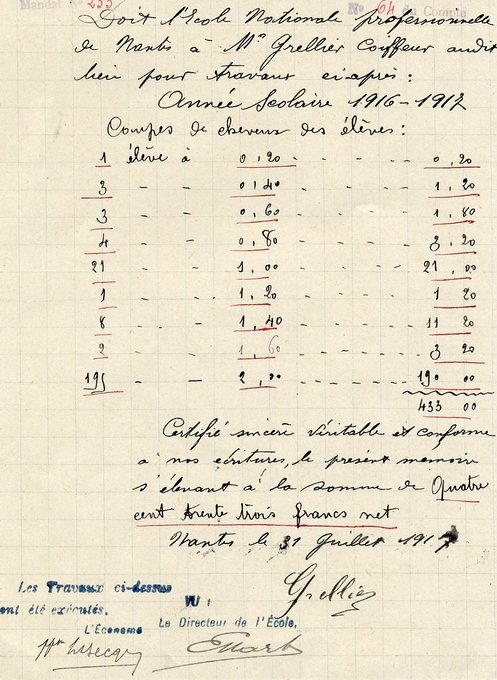 Mandat N° 233 N° 64 du Compte
Doit l'Ecole Nationale professionnelle
de Nantes à Mr Grellier Coiffeur audit
lieu pour travaux ci-après :
Année Scolaire 1916-1917
Coupes de cheveux des élèves :
1 élève à 0,20 - - - - - 0,20
3 - - 0,40 - - - - 1,20
3 - - 0,60 - - - - 1,80
4 - - 0,80 - - - - 3,20
21 - - 1,00 - - - - 21,00
1 - - 1,20 - - - - 1 20
8 - - 1,40 - - - - 11 20
2 - - 1,60 - - - - 3 20
195 - - 2,00 - - - - 190 00
433 00
Certifié sincère véritable et conforme
à nos écritures, le présent memoire
s'élevant à la somme de Quatre
cent trente trois francs net
Nantes le 31 Juillet 1917
Grellier
Les Travaux ci-dessus
ont été exécutés.
VU :
L'Econome
Le Directeur de l'École,